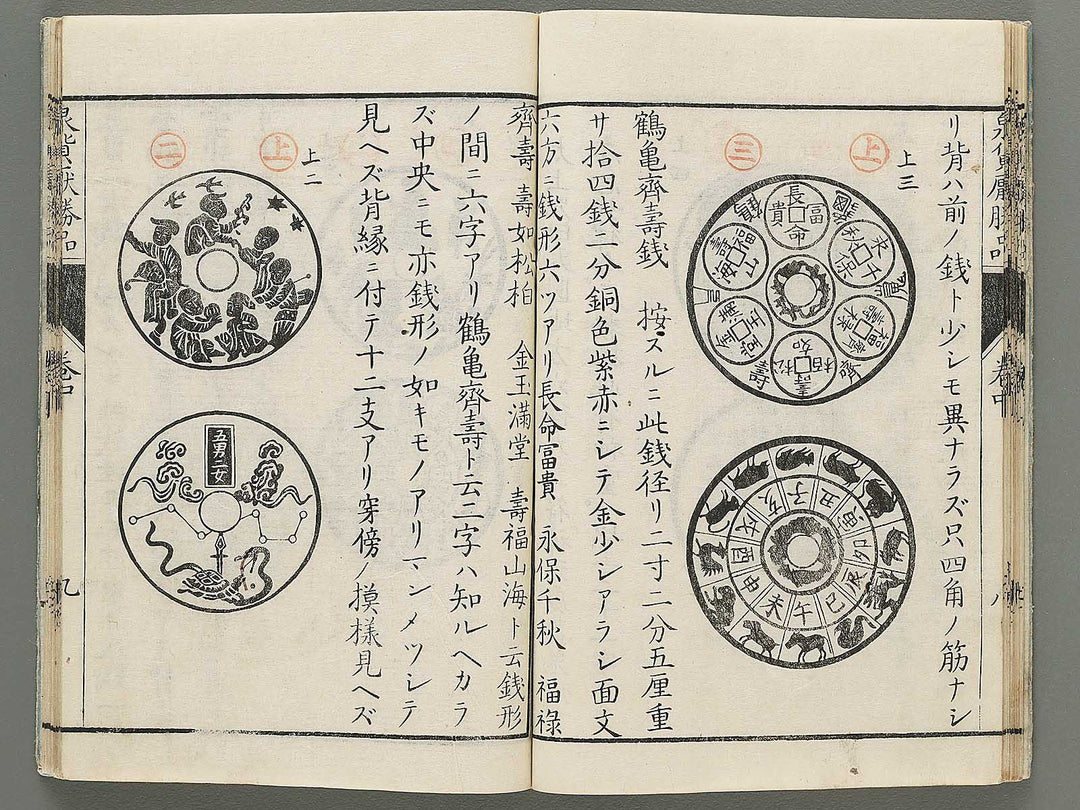 リ背ハ前ノ銭ト少シモ異ナラズ只四角ノ筋ナシ
上三
上
三
長命富貴
永保千秋
福禄齊壽
壽如松栢
金玉滿堂
壽福山海
子
丑
寅
卯
辰
巳
午
未
申
酉
戌
亥
鶴亀齊壽銭 按スルニ此銭径リ二寸二分五厘重
サ拾四銭二分銅色紫赤ニシテ金少シアラシ面文
六方ニ銭形六ツアリ長命冨貴 永保千秋 福禄
齊壽 壽如松柏 金玉滿堂 壽福山海ト云銭形
ノ間ニ六字アリ鶴亀齊壽ト云二字ハ知ルヘカラ
ズ中央ニモ亦銭形ノ如キモノアリマンメツシテ
見ヘズ背縁ニ付テ十二支アリ穿傍ノ摸様見ヘズ
上二
上
二
五男二女
卷中
八
卷中
九